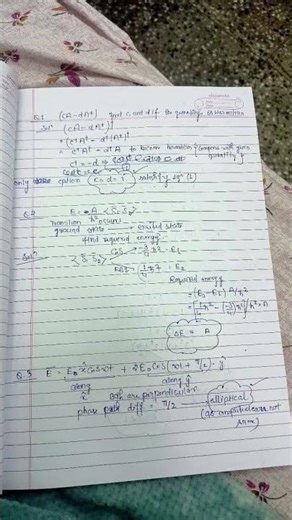 Q.1 (cA - dA†) find c and d if the quantity is Hermitian
Sol" (cA - dA†)†
= c*A† - d*(A†)†
= c*A† - d*A to become hermitian compare with given quantity
c* = -d ⇒
only option c = d = satisfy eqn (1)
Q.2 E = A <S1 S2>
Transition occurs
ground state Excited state
find required energy
Sol" <S1 S2> G.S = -3/4 ħ² - E1
E.S = 1/4 ħ² : E2
Required energy
= (E2 - E1) A/ħ²
= [1/4 ħ² - (-3/4) ħ²]/ħ² × A
ΔE = A
Q.3 E = E0 x̂ cos ωt + 2E0 cos(ωt + π/2) ŷ
along x̂
along ŷ
Both are perpendicular
phase path diff = π/2 → elliptical
(as amplitudes are not same)